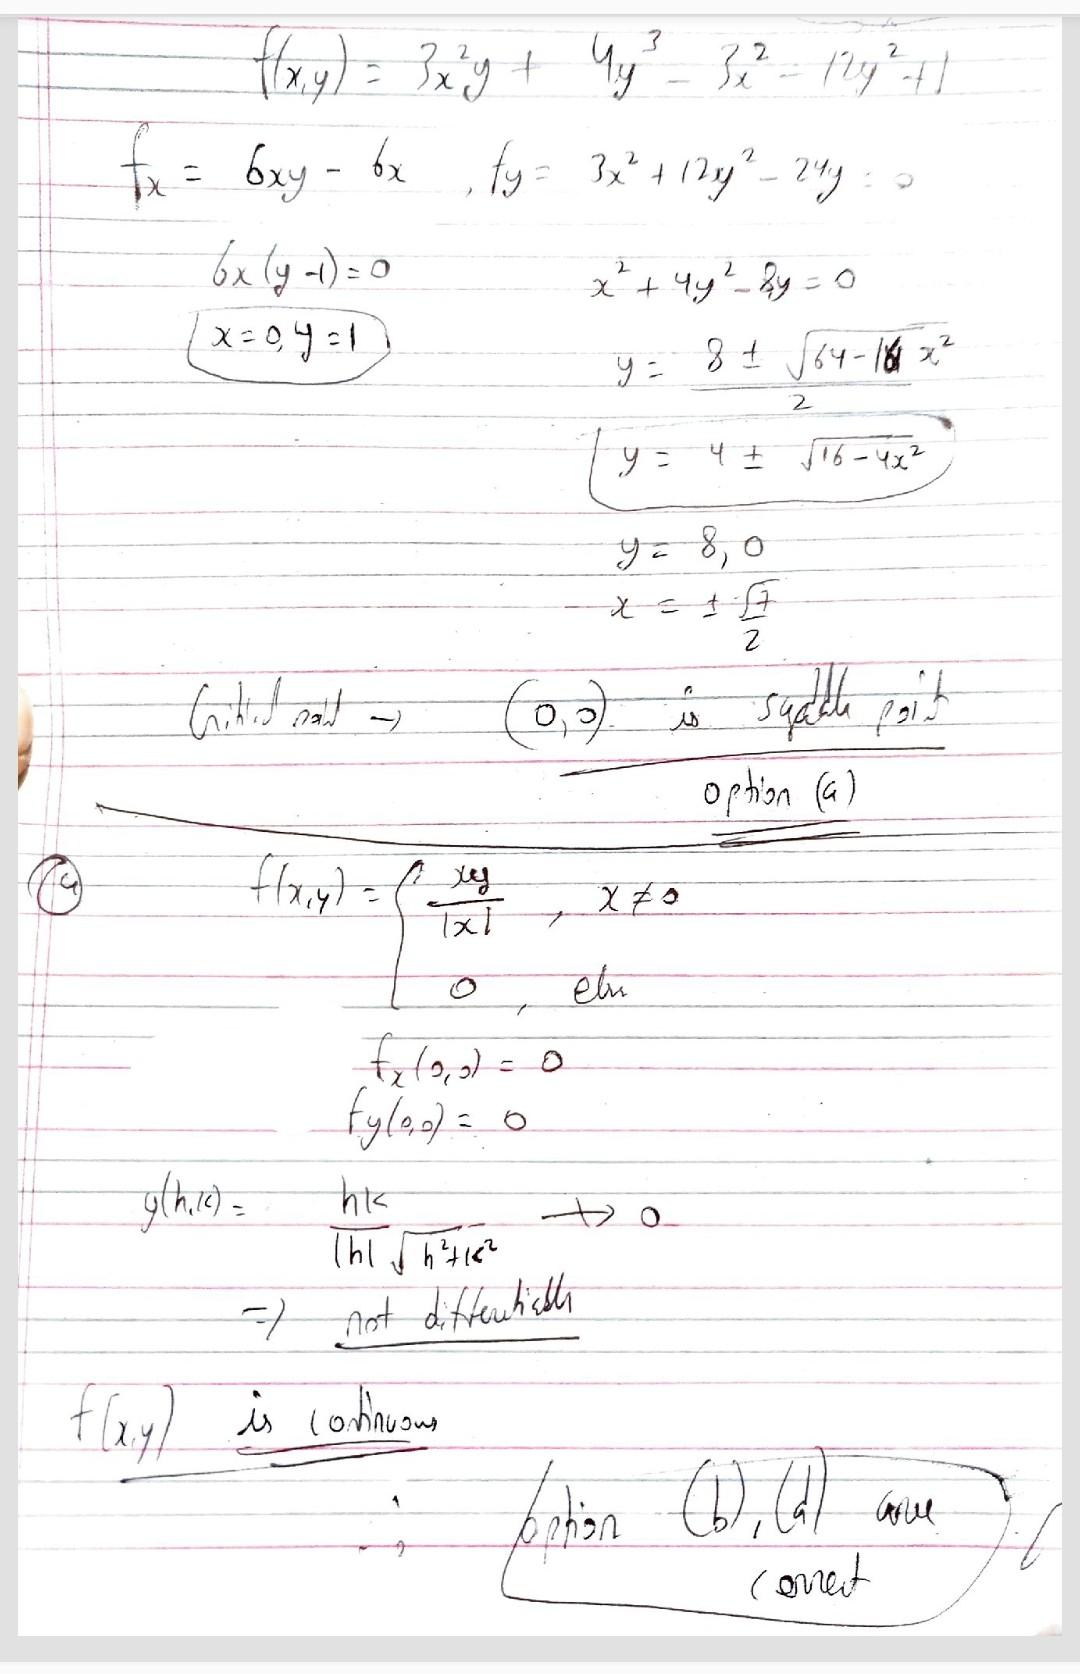 f(x,y) = 3x²y + 4y³ - 3x² - 12y² + 1
fx = 6xy - 6x , fy = 3x² + 12y² - 24y = 0
6x(y-1) = 0
x² + 4y² - 8y = 0
x=0, y=1
y = 8 ± √64-16x² / 2
y = 4 ± √16-4x²
y = 8, 0
x = ± √7 / 2
Critical point → (0,0) is saddle point
option (a)
f(x,y) = { xy / |x| , x ≠ 0
0 , else
fx(0,0) = 0
fy(0,0) = 0
g(h,k) = hk / |h| √h²+k² ↛ 0
⇒ not differentiable
f(x,y) is continuous
∴ option (b), (d) are
correct